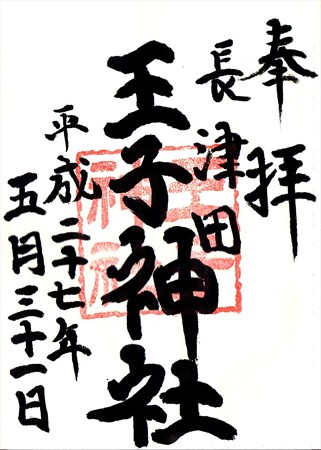 奉拝
長津田
王子神社
平成二十七年
五月三十一日